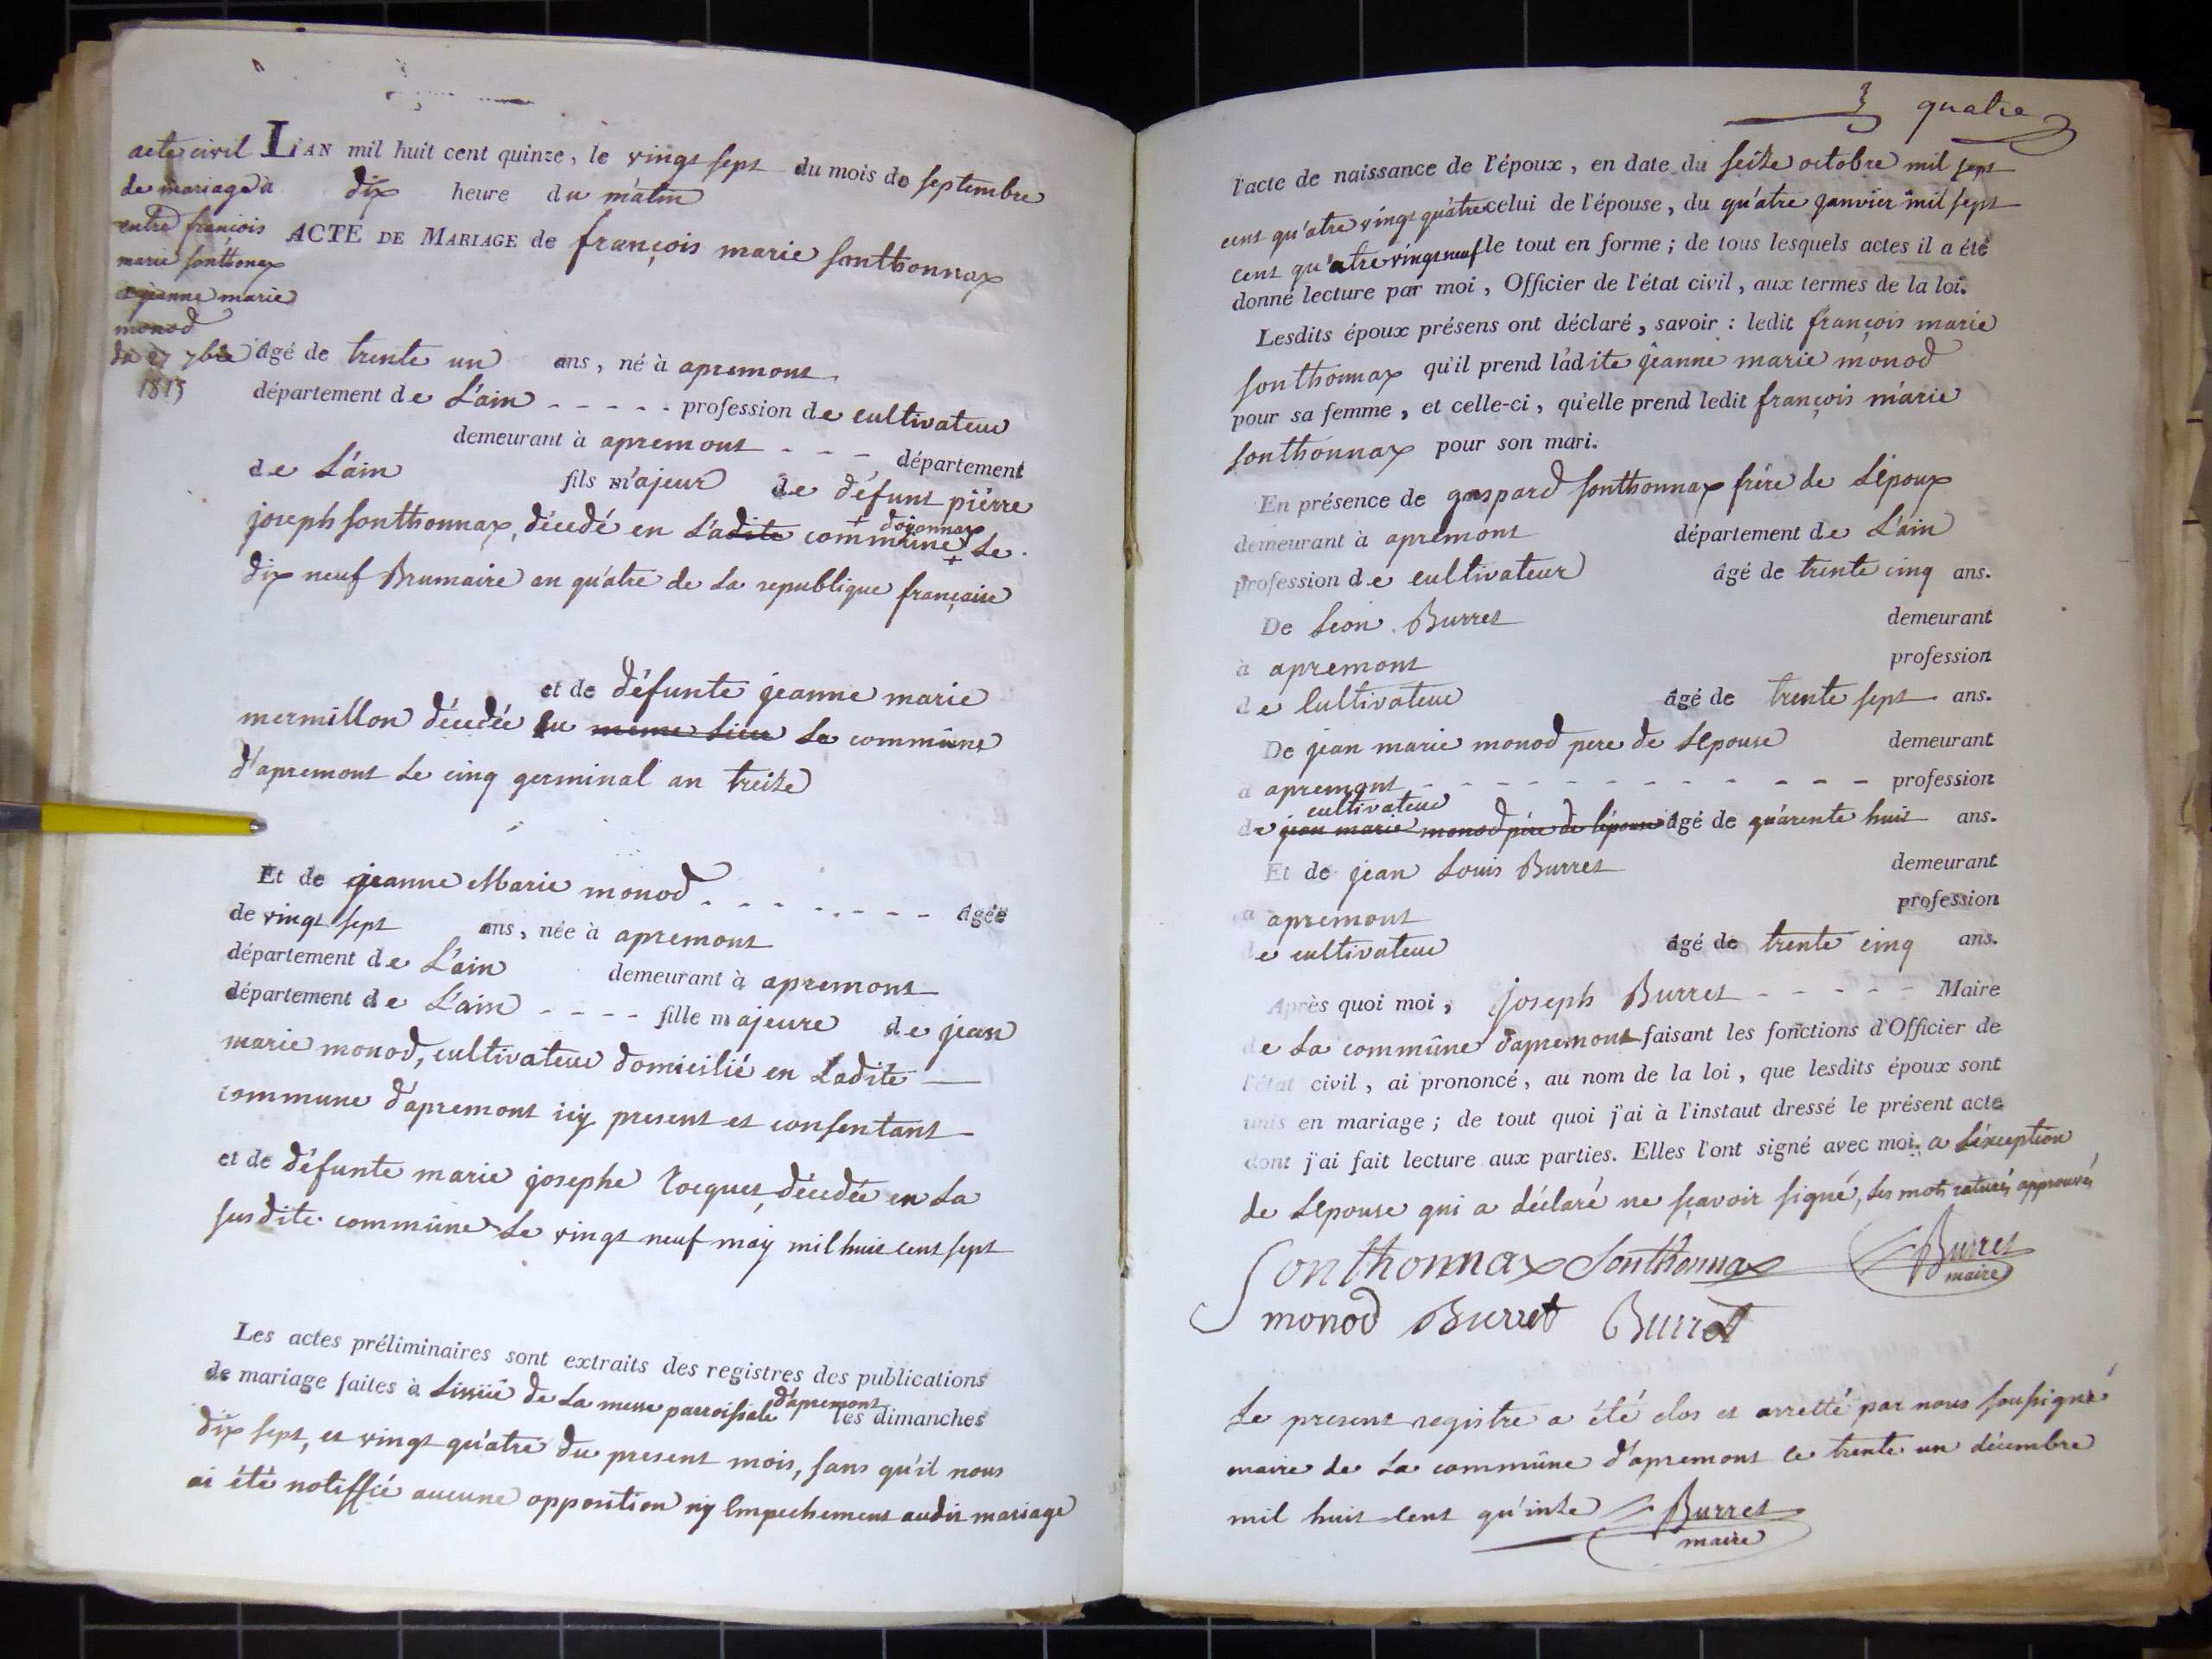 acte civil
de mariage à
entre françois
marie sonthonax
et jeanne marie
monod
du 27 7bre
1815
L'AN mil huit cent quinze, le vingt sept du mois de septembre
dix heure du matin
ACTE DE MARIAGE de françois marie sonthonnax
âgé de trente un ans, né à apremont
département de L'ain - - - - - profession de cultivateur
demeurant à apremont - - - département
de L'ain fils majeur de défunt pierre
joseph sonthonnax, décedé en Ladite commune + doyonnax + Le
dix neuf Brumaire an quatre de La republique française
et de défunte jeanne marie
mermillon décedée en meme Lieu La commune
d'apremont Le cinq germinal an treize
Et de jeanne Marie monod - - - - - - - - âgée
de vingt sept ans, née à apremont
département de L'ain demeurant à apremont
département de L'ain - - - - fille majeure de jean
marie monod, cultivateur domicilié en Ladite
commune d'apremont icy present et consentant
et de défunte marie josephe Tocquet, décedée en La
susdite commûne Le vingt neuf may mil huit cent sept
Les actes préliminaires sont extraits des registres des publications
de mariage faites à Lissüe de La messe parroissiale d'apremont les dimanches
dix sept, et vingt quatre du present mois, sans qu'il nous
ai été notiffié aucune opposition ny Empechement audit mariage
quatre
l'acte de naissance de l'époux, en date du seize octobre mil sept
cent qu'atre vingt quatre celui de l'épouse, du qu'atre janvier mil sept
cent qu'atre vingt neuf le tout en forme ; de tous lesquels actes il a été
donné lecture par moi, Officier de l'état civil, aux termes de la loi.
Lesdits époux présens ont déclaré, savoir : ledit françois marie
sonthonnax qu'il prend ladite jeanne marie monod
pour sa femme, et celle-ci, qu'elle prend ledit françois marie
sonthonnax pour son mari.
En présence de gaspard sonthonnax frére de L'époux
demeurant à apremont département de L'ain
profession de cultivateur âgé de trente cinq ans.
De Léon Burret demeurant
à apremont profession
de Cultivateur âgé de trente sept ans.
De jean marie monod pere de L'Epouse demeurant
à apremont - - - - - - - - - - - - profession
cultivateur
de jean marie monod pére de l'épouse âgé de quarente huit ans.
Et de jean Louis Burret demeurant
à apremont profession
de cultivateur âgé de trente cinq ans.
Après quoi moi, joseph Burret - - - - - Maire
de La commûne d'apremont faisant les fonctions d'Officier de
l'état civil, ai prononcé, au nom de la loi, que lesdits époux sont
unis en mariage ; de tout quoi j'ai à l'instaut dressé le présent acte
dont j'ai fait lecture aux parties. Elles l'ont signé avec moi. a L'exception
de L'Epouse qui a déclaré ne sçavoir signé, Les mots raturés approuvés
Sonthonnax Sonthonnax Burret
maire
monod Burret Burret
Le present registre a été clos et arretté par nous soussigné
maire de La commûne d'apremont ce trente un décembre
mil huit cent qu'inze Burret
maire